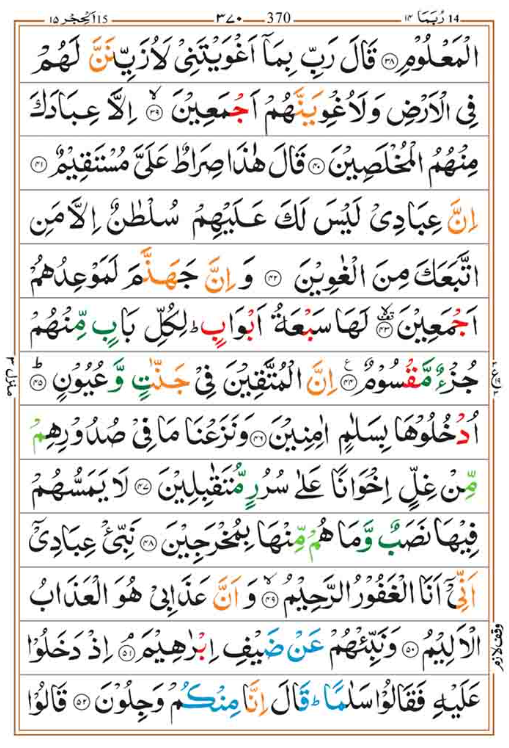 رُبَمَا ١٤ 14 ٣٧٠ 370 اَلْحِجْر ١٥ 15
الْمَعْلُوْمِ ۞٣٨ قَالَ رَبِّ بِمَاۤ اَغْوَيْتَنِىْ لَاُزَيِّنَنَّ لَهُمْ
فِى الْاَرْضِ وَلَاُغْوِيَنَّهُمْ اَجْمَعِيْنَ ۙ۞٣٩ اِلَّا عِبَادَكَ
مِنْهُمُ الْمُخْلَصِيْنَ ۞٤٠ قَالَ هٰذَا صِرَاطٌ عَلَىَّ مُسْتَقِيْمٌ ۞٤١
اِنَّ عِبَادِىْ لَيْسَ لَكَ عَلَيْهِمْ سُلْطٰنٌ اِلَّا مَنِ
اتَّبَعَكَ مِنَ الْغٰوِيْنَ ۞٤٢ وَاِنَّ جَهَنَّمَ لَمَوْعِدُهُمْ
اَجْمَعِيْنَ ۞٤٣ لَهَا سَبْعَةُ اَبْوَابٍ ؕ لِكُلِّ بَابٍ مِّنْهُمْ
جُزْءٌ مَّقْسُوْمٌ ۞٤٤ اِنَّ الْمُتَّقِيْنَ فِىْ جَنّٰتٍ وَّعُيُوْنٍ ؕ۞٤٥
اُدْخُلُوْهَا بِسَلٰمٍ اٰمِنِيْنَ ۞٤٦ وَنَزَعْنَا مَا فِىْ صُدُوْرِهِمْ
مِّنْ غِلٍّ اِخْوَانًا عَلٰى سُرُرٍ مُّتَقٰبِلِيْنَ ۞٤٧ لَا يَمَسُّهُمْ
فِيْهَا نَصَبٌ وَّمَا هُمْ مِّنْهَا بِمُخْرَجِيْنَ ۞٤٨ نَبِّئْ عِبَادِىْۤ
اَنِّىْۤ اَنَا الْغَفُوْرُ الرَّحِيْمُ ۙ۞٤٩ وَاَنَّ عَذَابِىْ هُوَ الْعَذَابُ
الْاَلِيْمُ ۞٥٠ وَنَبِّئْهُمْ عَنْ ضَيْفِ اِبْرٰهِيْمَ ۘ۞٥١ اِذْ دَخَلُوْا
عَلَيْهِ فَقَالُوْا سَلٰمًا ؕ قَالَ اِنَّا مِنْكُمْ وَجِلُوْنَ ۞٥٢ قَالُوْا
منزل ٣
وقف لازم